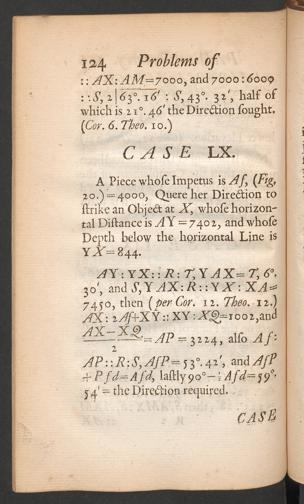 124 Problems of
:: AX: AM=7000, and 7000:6009
:: S, 2|63°. 16′ : S, 43°. 32′, half of
which is 21°. 46′ the Direction sought.
(Cor. 6. Theo. 10.)
CASE LX.
A Piece whoſe Impetus is Aſ, (Fig,
20.)=4000, Quere her Direction to
ſtrike an Object at X, whoſe horizon-
tal Diſtance is AY=7402, and whoſe
Depth below the horizontal Line is
YX=844.
AY:YX::R:T,YAX=T,6°.
30′, and S,YAX:R::YX:XA=
7450, then (per Cor. 12. Theo. 12.)
AX: 2Aſ+XY::XY:XQ=1002,and
AX—XQ
2
=AP=3224, alſo Aſ:
AP::R:S,AſP=53°.42′, and AſP
+Pſd=Aſd, laſtly 90°—½Aſd=59°.
54′= the Direction required.
CASE